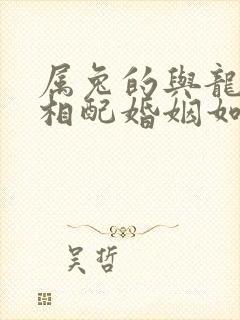 属兔的與龍
相配婚姻如
吴哲